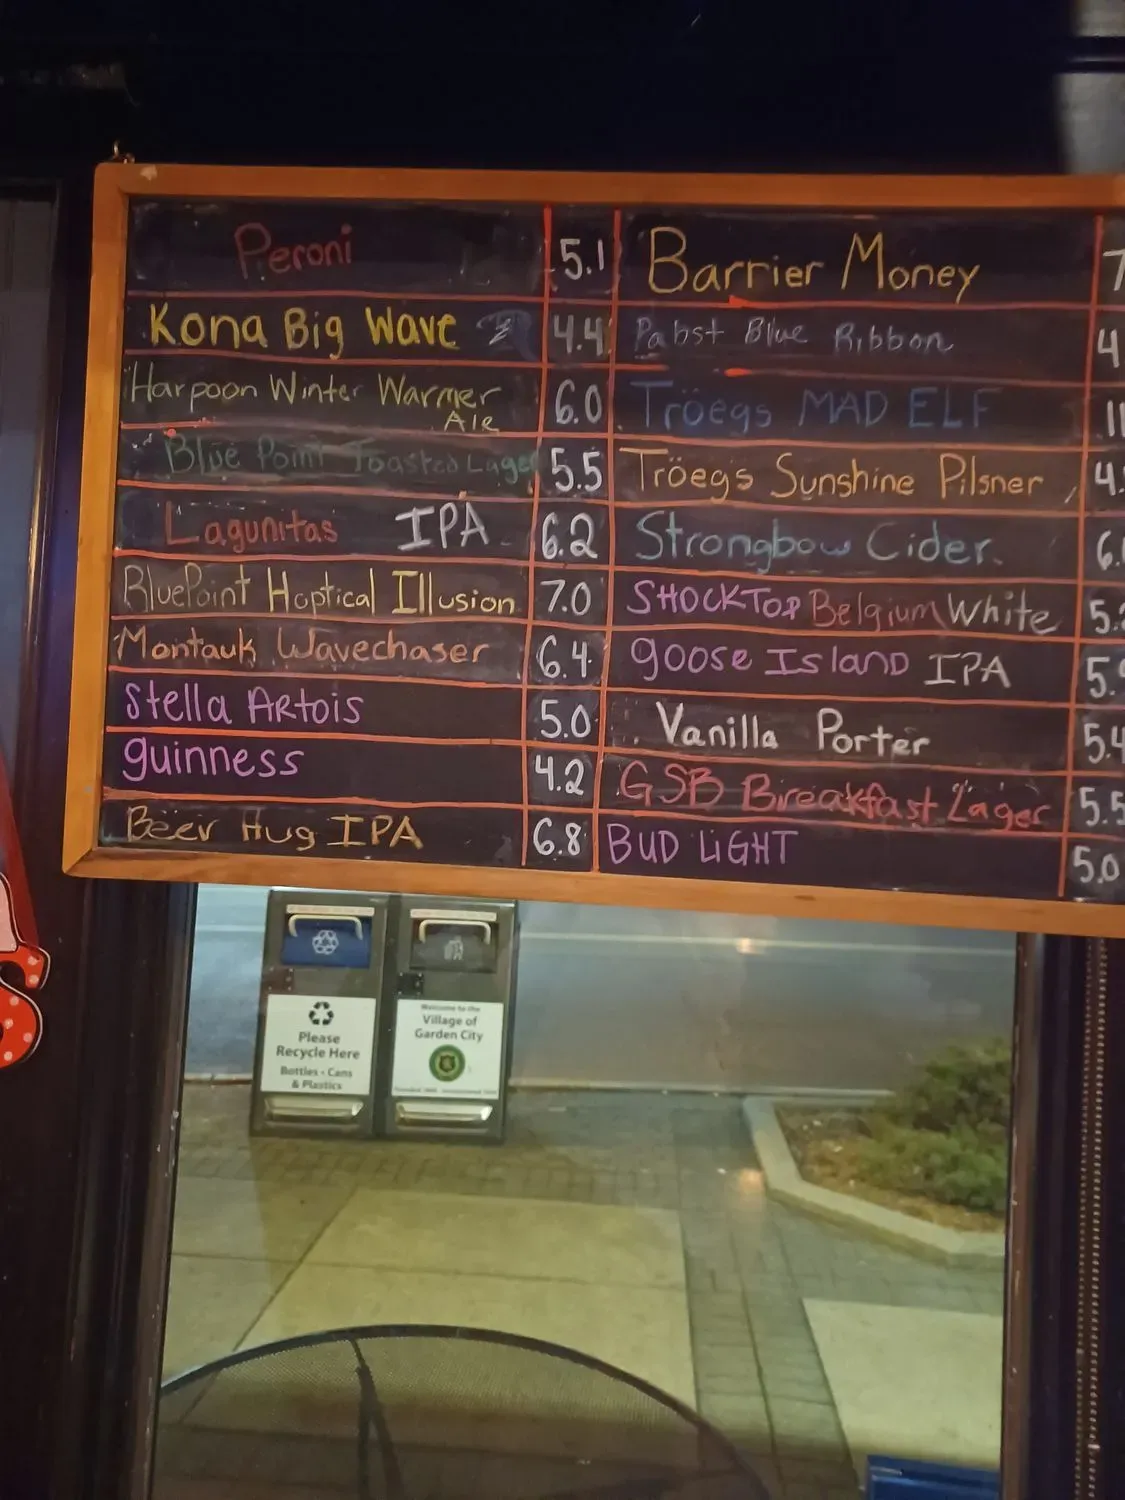 Peroni 5.1
Kona Big Wave 4.4
Harpoon Winter Warmer
Ale 6.0
Blue Point Toasted Lager 5.5
Lagunitas IPA 6.2
BluePoint Hoptical Illusion 7.0
Montauk Wavechaser 6.4
Stella Artois 5.0
guinness 4.2
Beer Hug IPA 6.8
Barrier Money
Pabst Blue Ribbon
Tröegs MAD ELF
Tröegs Sunshine Pilsner
Strongbow Cider
SHOCKTOP Belgium White
goose Island IPA
Vanilla Porter
GSB Breakfast Lager 5.5
BUD LIGHT 5.0
Please
Recycle Here
Bottles • Cans
& Plastics
Welcome to the
Village of
Garden City